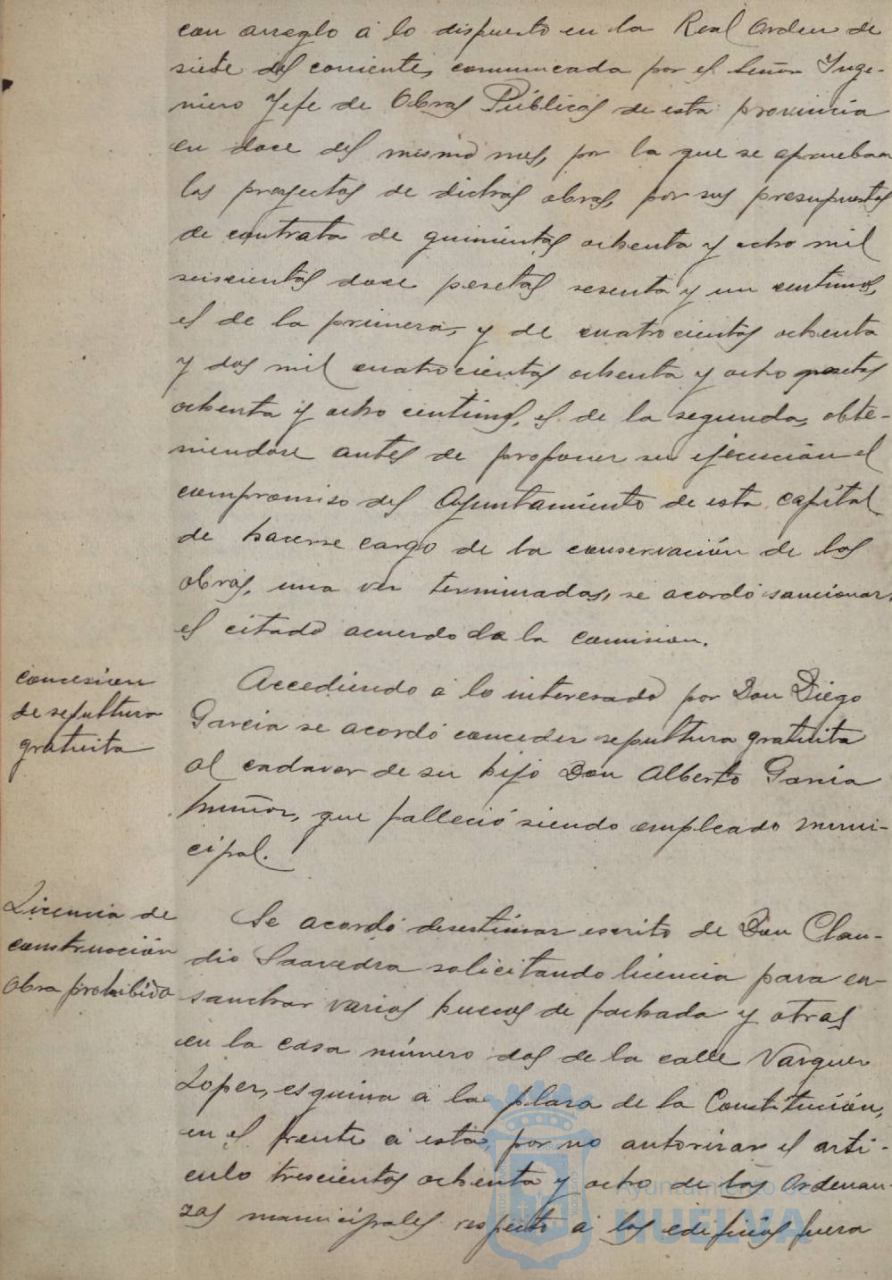 con arreglo á lo dispuesto en la Real Orden de
siete del corriente, comunicada por el Señor Inge-
niero Jefe de Obras Públicas de esta provincia
en doce del mismo mes, por la que se aprueban
los proyectos de dichas obras, por sus presupuestos
de contrata de quinientas ochenta y ocho mil
seiscientas doce pesetas sesenta y un centimos,
el de la primera, y de cuatrocientas ochenta
y dos mil cuatrocientas ochenta y ocho pesetas
ochenta y ocho centimos, el de la segunda, obte-
niendose antes de proponer su ejecución el
compromiso del Ayuntamiento de esta capital
de hacerse cargo de la conservación de las
obras, una vez terminadas, se acordó sancionar
el citado acuerdo de la comision.
concesion
de sepultura
gratuita
Accediendo á lo interesado por Don Diego
Garcia se acordó conceder sepultura gratuita
al cadaver de su hijo Don Alberto Garcia
Muñoz, que falleció siendo empleado muni-
cipal.
Licencia de
construcción
obra prohibida
Se acordó desestimar escrito de Don Clau-
dio Saavedra solicitando licencia para en-
sanchar varios huecos de fachada y otras
en la casa número dos de la calle Vazquez
Lopez, esquina a la plaza de la Constitución,
en el frente á esta, por no autorizar el arti-
culo trescientos ochenta y ocho de las Ordenan-
zas municipales respecto á los edificios fuera
Ayuntamiento de
HUELVA